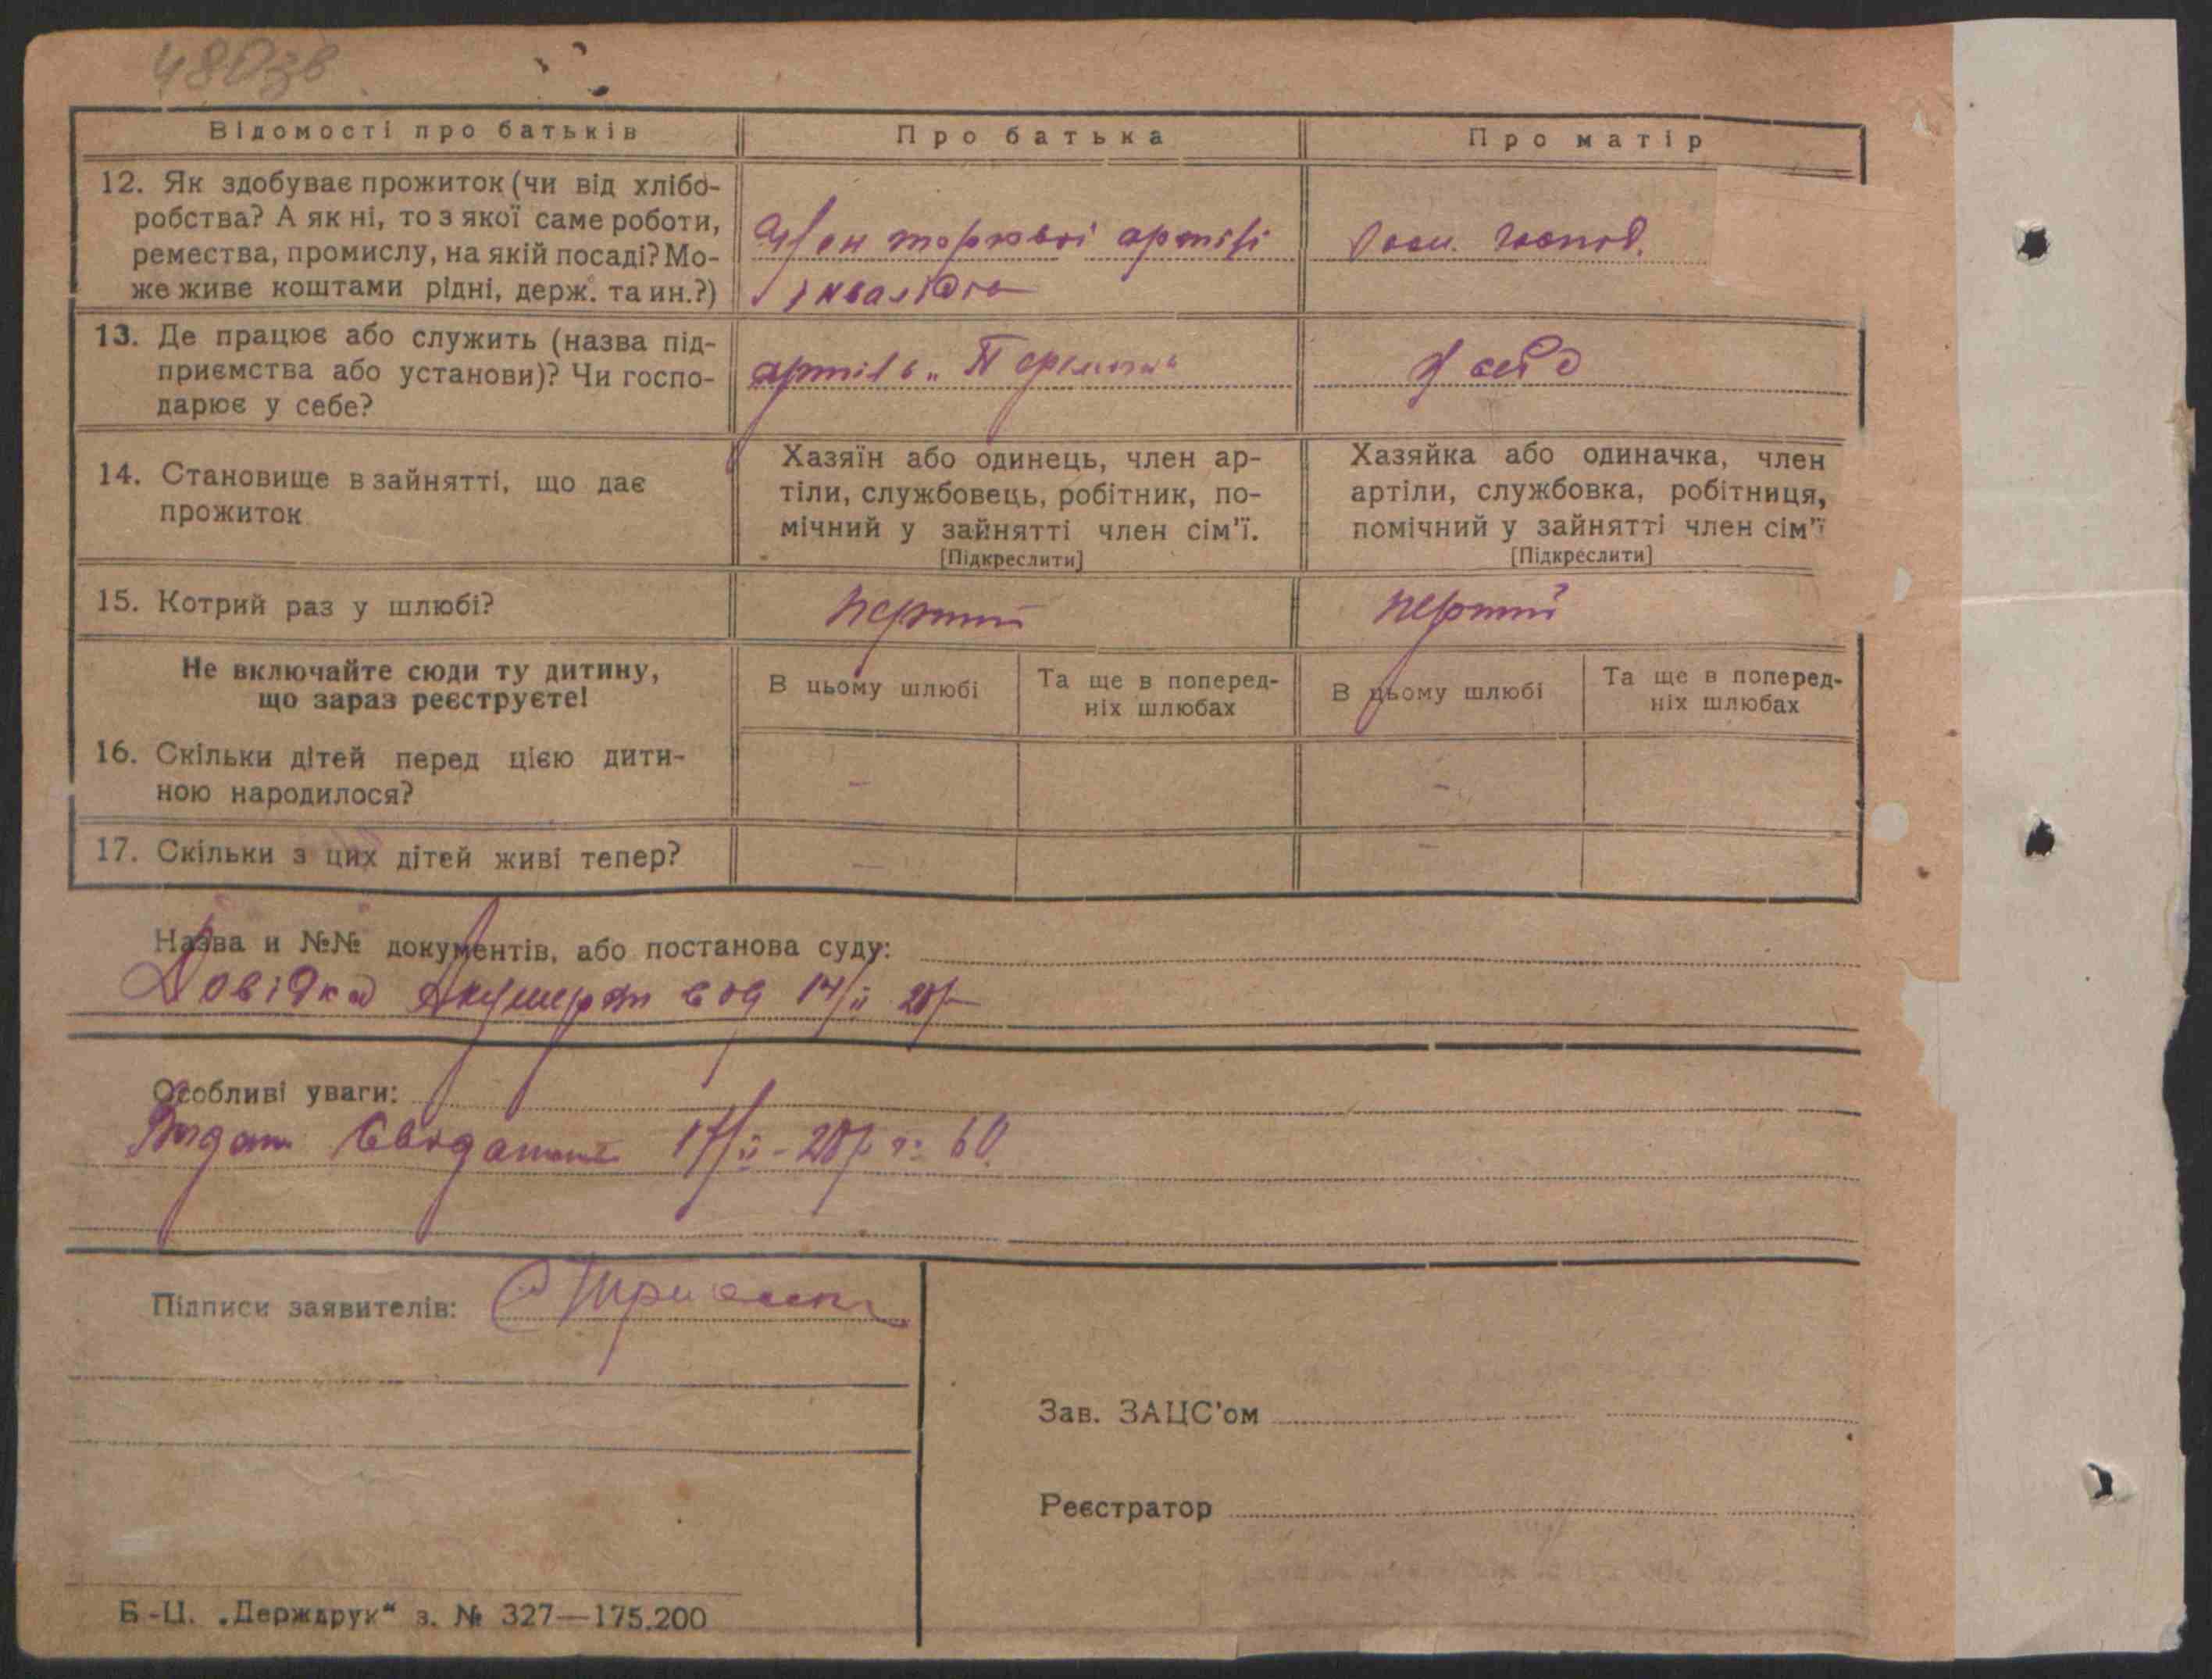 480зв
Відомості про батьків
Про батька
Про матір
12. Як здобуває прожиток (чи від хлібо-
робства? А як ні, то з якої саме роботи,
ремества, промислу, на якій посаді? Мо-
же живе коштами рідні, держ. та ин.?)
Член торгової артілі
інвалідів
Дом. господ.
13. Де працює або служить (назва під-
приємства або установи)? Чи госпо-
дарює у себе?
артіль „Перемога“
У себе
14. Становище в зайнятті, що дає
прожиток
Хазяїн або одинець, член ар-
тіли, службовець, робітник, по-
мічний у зайнятті член сім'ї.
[Підкреслити]
Хазяйка або одиначка, член
артіли, службовка, робітниця,
помічний у зайнятті член сім'ї
[Підкреслити]
15. Котрий раз у шлюбі?
перший
перший
Не включайте сюди ту дитину,
що зараз реєструєте!
В цьому шлюбі
Та ще в поперед-
ніх шлюбах
В цьому шлюбі
Та ще в поперед-
ніх шлюбах
16. Скільки дітей перед цією дити-
ною народилося?
-
-
17. Скільки з цих дітей живі тепер?
-
-
Назва и №№ документів, або постанова суду:
Довідка Акушерки від 14/ii 28р
Особливі уваги:
17/ii-28р 60
Підписи заявителів:
Зав. ЗАЦС'ом
Реєстратор
Б-Ц. „Держдрук“ з. № 327—175.200